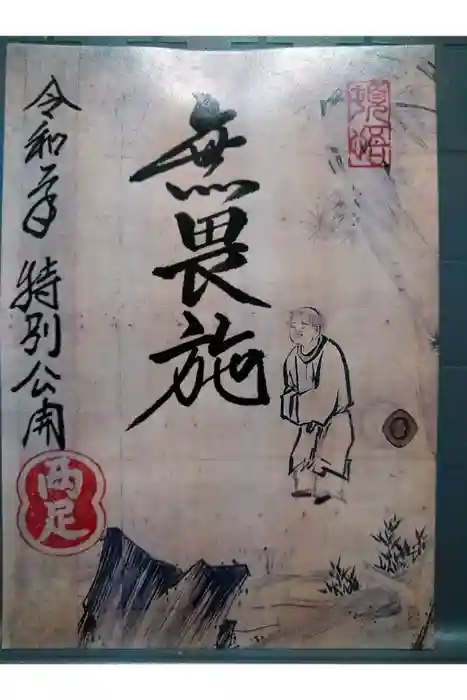 無畏施
令和 年 特別公開
両足